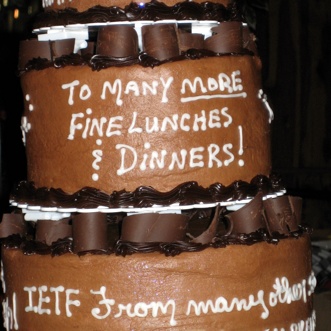 TO MANY MORE
FINE LUNCHES
& DINNERS!
IETF From many other